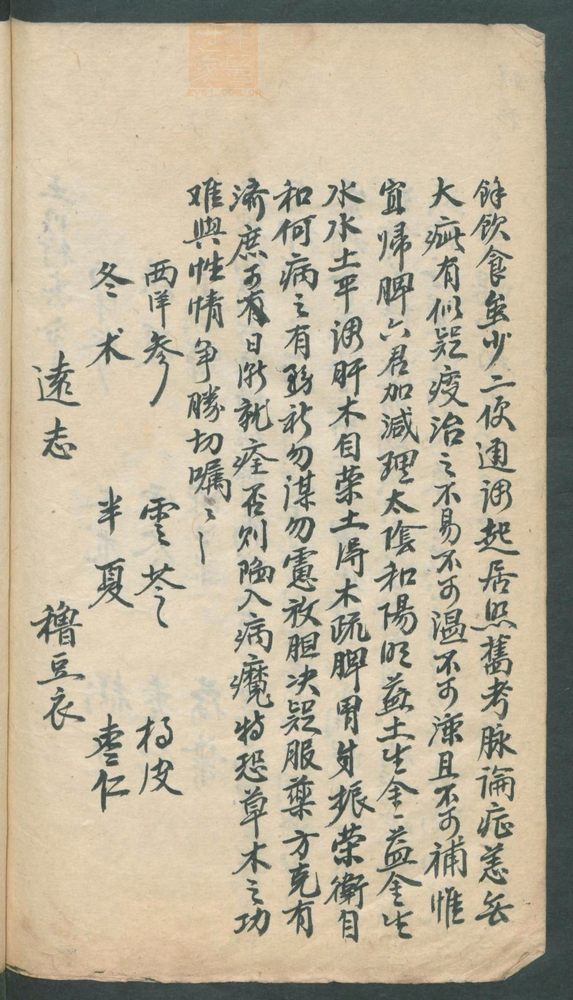 餘飲食無少二便通調起居照舊考脉論症恙無
大痲有似疑疫治之不易不可溫不可凉且不可補惟
宜歸脾六君加減理太陰和陽明益土生金益金生
水水土平調肝木自榮土得木疏脾胃自振榮衛自
和何病之有務祈勿謀勿慮放胆决疑服藥方克有
濟庶可有日漸就痊否則陷入病魔特恐草木之功
难與性情争勝切嘱〻
西洋參 雲苓 杨皮
冬术 半夏 棗仁
遠志 穭豆衣